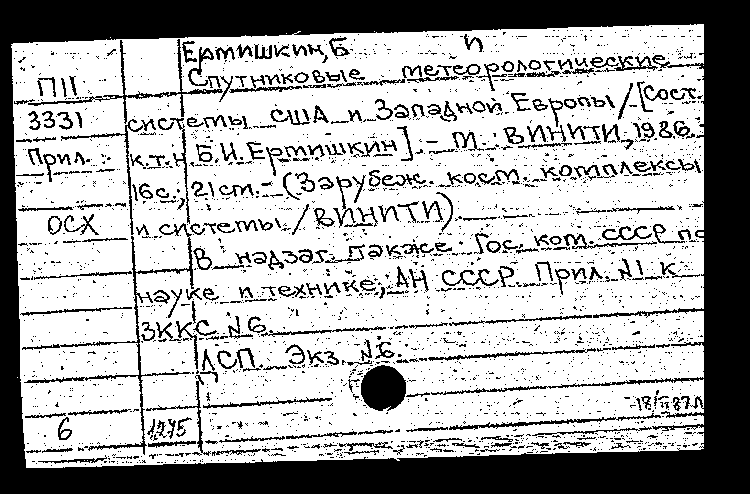 Ермишкин, Б И
П11 Спутниковые метеорологические
3331 системы США и Западной Европы / [Сост.
Прил. к.т.н. Б.И. Ермишкин]. - М.: ВИНИТИ, 1986. -
16с.; 21см. - (Зарубеж. косм. комплексы
ОСХ и системы / ВИНИТИ)
В надзаг. также: Гос. ком. СССР по
науке и технике, АН СССР. Прил. №1 к
ЗККС №6.
ДСП. Экз. №6.
6 1275